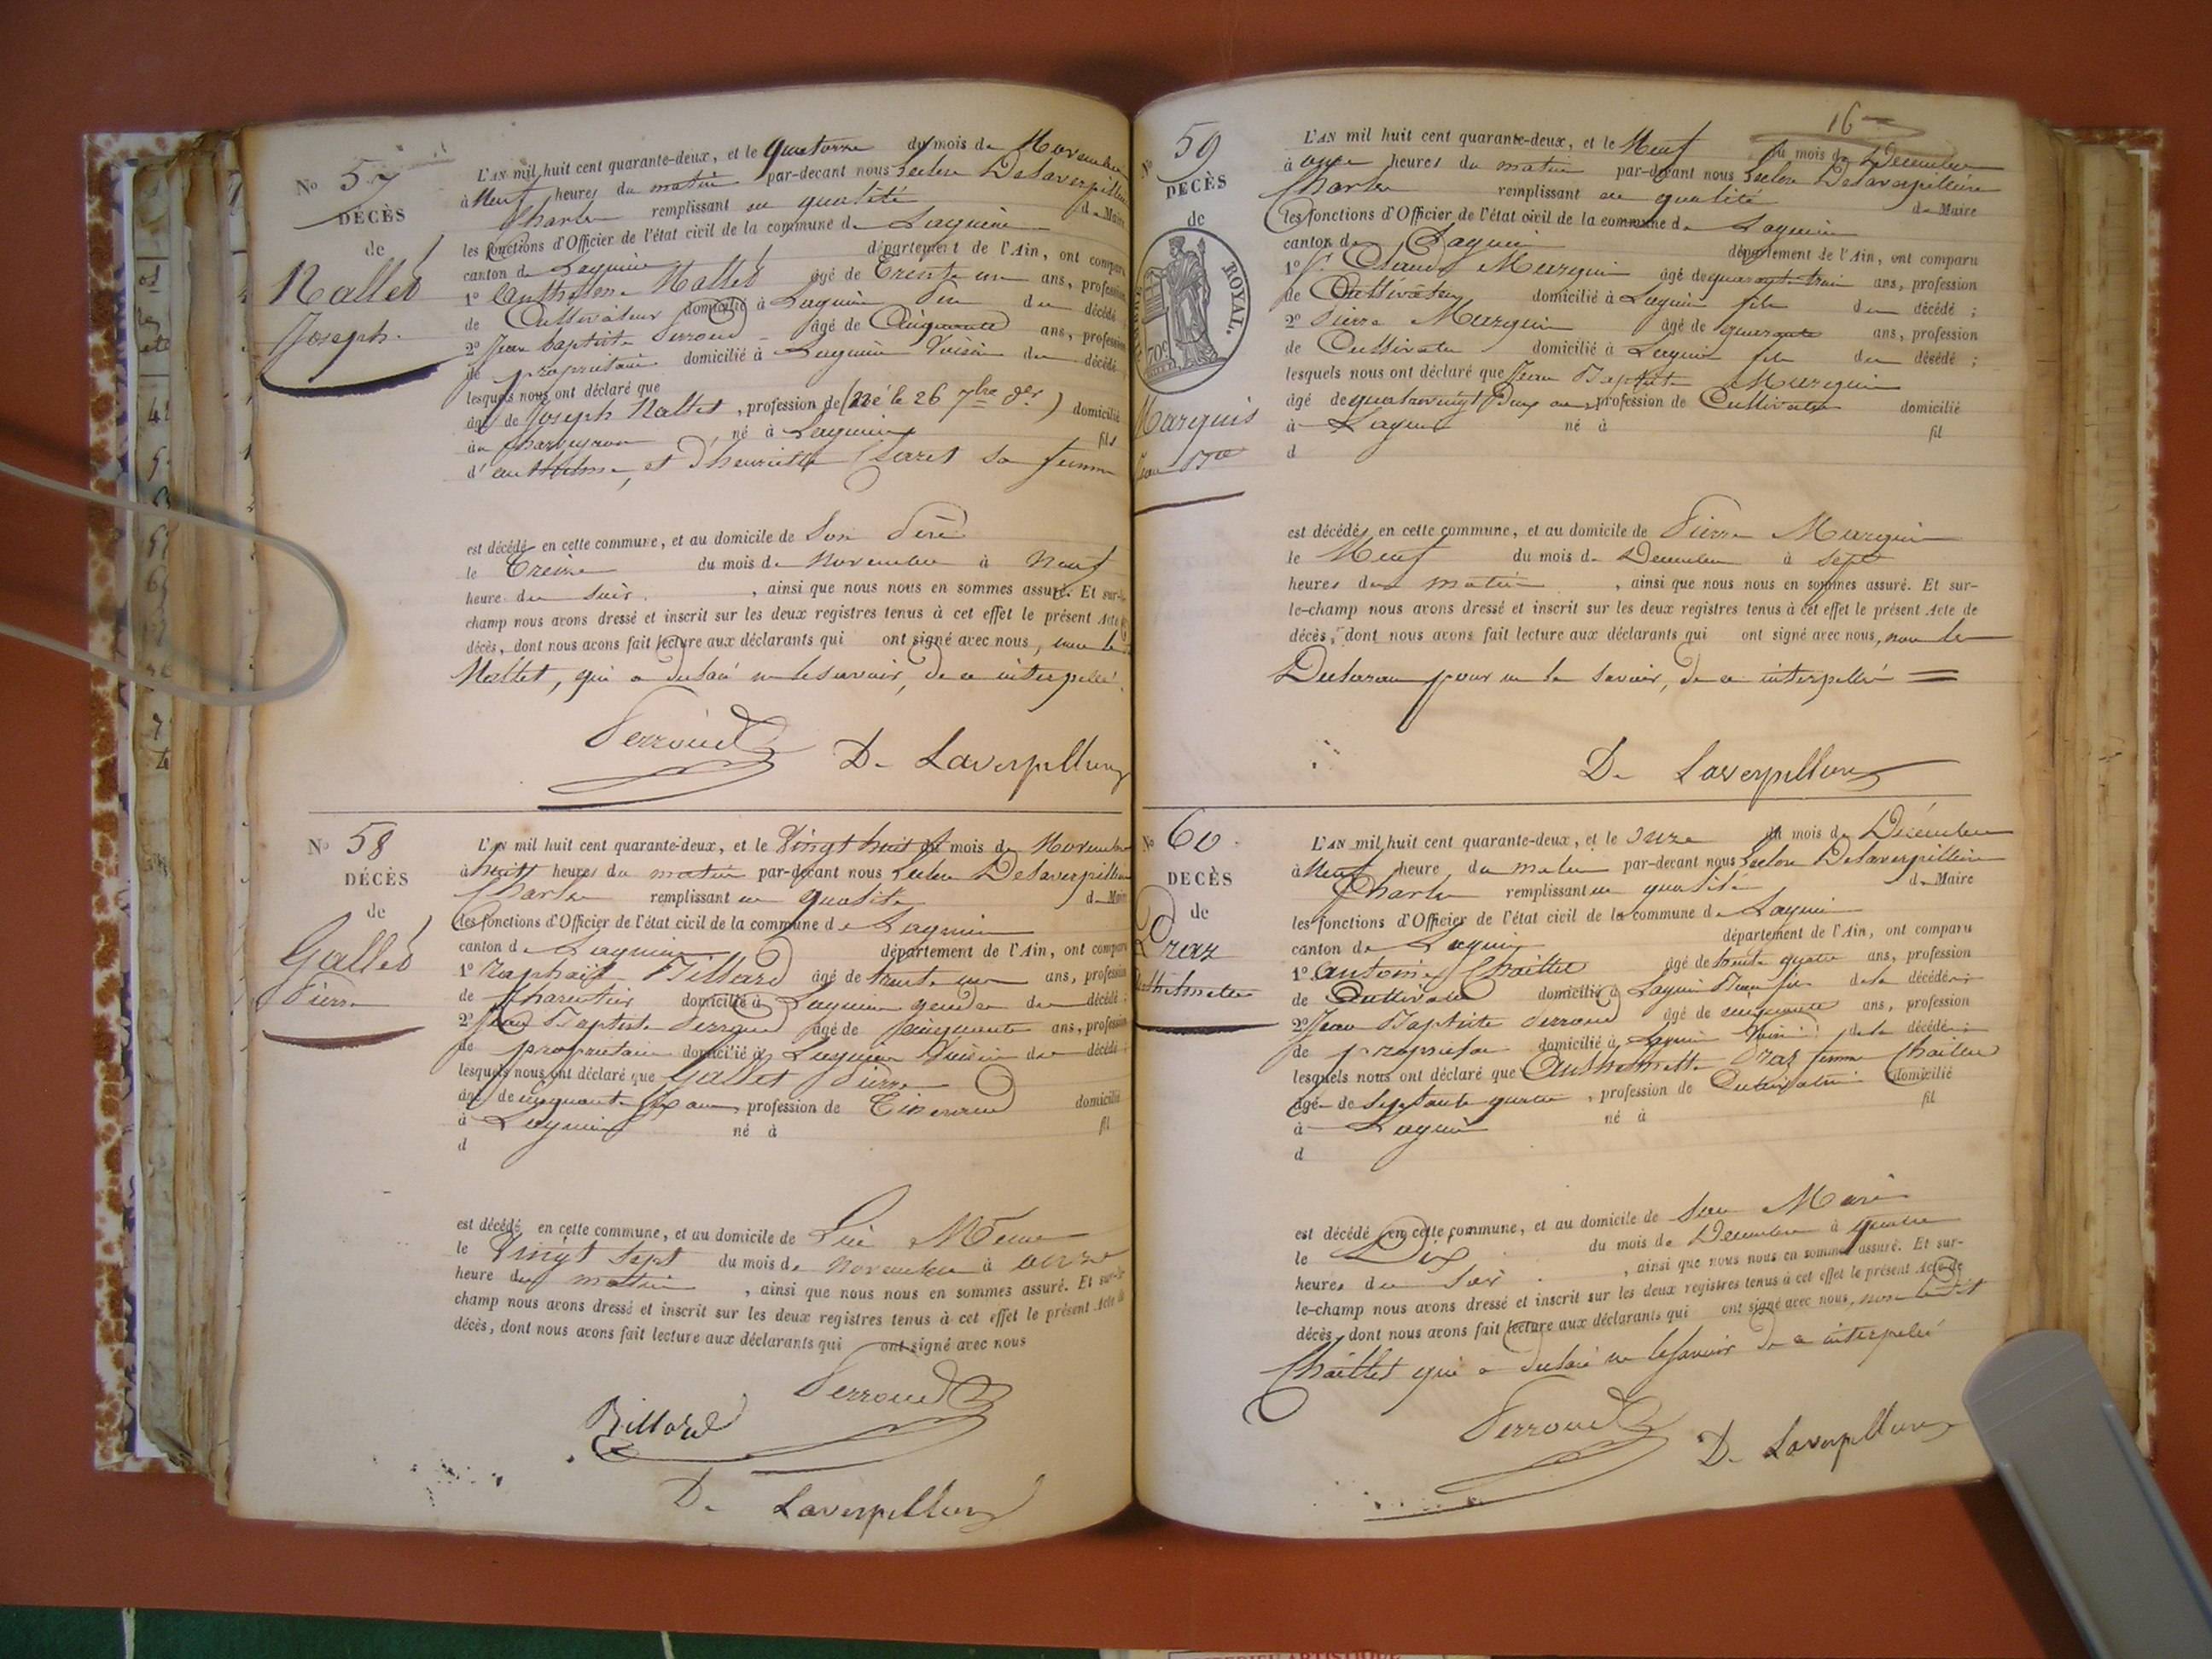 No 57
DÉCÈS
de
Nallet
Joseph.
L'AN mil huit cent quarante-deux, et le quatorze du mois de Novembre
à Neuf heures du matin par-devant nous Leclerc Delaverpillière
Charles remplissant en qualité de Maire
les fonctions d'Officier de l'état civil de la commune de Lagnieu
canton de Lagnieu département de l'Ain, ont comparu
1° Anthelme Nallet âgé de Trente un ans, profession
de Cultivateur domicilié à Lagnieu Père du décédé;
2° Jean Baptiste Perroud âgé de Cinquante ans, profession
de propriétaire domicilié à Lagnieu Voisin du décédé
lesquels nous ont déclaré que
âgé de Joseph Nallet, profession de (né le 26 7bre der) domicilié
au Charveyron né à Lagnieu fils
d'anthelme, et d'henriette sa femme
est décédé en cette commune, et au domicile de Son Père
le Treize du mois de Novembre à Neuf
heure du soir, ainsi que nous nous en sommes assuré. Et sur-le-
champ nous avons dressé et inscrit sur les deux registres tenus à cet effet le présent Acte de
décès, dont nous avons fait lecture aux déclarants qui ont signé avec nous, non le
Nallet, qui a déclaré ne le savoir, de ce interpellé.
Perroud
De Laverpilliere
No 58
DÉCÈS
de
Gallet
Pierre
L'AN mil huit cent quarante-deux, et le Vingt huit du mois de Novembre
à huit heures du matin par-devant nous Leclerc Delaverpillière
Charles remplissant en qualité de Maire
les fonctions d'Officier de l'état civil de la commune de Lagnieu
canton de Lagnieu département de l'Ain, ont comparu
1° Raphaël Billard âgé de trente un ans, profession
de Charpentier domicilié à Lagnieu gendre du décédé;
2° Jean Baptiste Perroud âgé de Cinquante ans, profession
de propriétaire domicilié à Lagnieu Voisin du décédé
lesquels nous ont déclaré que Gallet Pierre
âgé de cinquante Six ans, profession de Tisserand domicilié
à Lagnieu né à fil
d
est décédé en cette commune, et au domicile de Lui Même
le Vingt Sept du mois de Novembre à onze
heure du matin, ainsi que nous nous en sommes assuré. Et sur-le-
champ nous avons dressé et inscrit sur les deux registres tenus à cet effet le présent Acte de
décès, dont nous avons fait lecture aux déclarants qui ont signé avec nous
Perroud
Billard
De Laverpilliere
16
No 59
DÉCÈS
de
ROYAL.
70c
Marquis
Jean Bte
L'AN mil huit cent quarante-deux, et le Neuf du mois de Décembre
à onze heures du matin par-devant nous Leclerc Delaverpillière
Charles remplissant en qualité de Maire
les fonctions d'Officier de l'état civil de la commune de Lagnieu
canton de Lagnieu département de l'Ain, ont comparu
1° Claude Marquis âgé de quarante trois ans, profession
de Cultivateur domicilié à Lagnieu fils du décédé;
2° Pierre Marquis âgé de quarante ans, profession
de Cultivateur domicilié à Lagnieu fils du décédé;
lesquels nous ont déclaré que Jean Baptiste Marquis
âgé de quatrevingt Deux ans, profession de Cultivateur domicilié
à Lagnieu né à fil
d
est décédé, en cette commune, et au domicile de Pierre Marquis
le Neuf du mois de Décembre à Sept
heures du matin, ainsi que nous nous en sommes assuré. Et sur-
le-champ nous avons dressé et inscrit sur les deux registres tenus à cet effet le présent Acte de
décès, dont nous avons fait lecture aux déclarants qui ont signé avec nous, non les
Déclarans pour ne le savoir, de ce interpellé =
De Laverpilliere
No 60.
DÉCÈS
de
Praz
Anthelmette
L'AN mil huit cent quarante-deux, et le onze du mois de Décembre
à Neuf heure du matin par-devant nous Leclerc Delaverpillière
Charles remplissant en qualité de Maire
les fonctions d'Officier de l'état civil de la commune de Lagnieu
canton de Lagnieu département de l'Ain, ont comparu
1° Antoine Chaillet âgé de trente quatre ans, profession
de Cultivateur domicilié à Lagnieu Beau fils de la décédée;
2° Jean Baptiste Perroud âgé de cinquante ans, profession
de propriétaire domicilié à Lagnieu Voisin de la décédée;
lesquels nous ont déclaré que Anthelmette Praz femme Chaillet
âgé de Septante quatre, profession de Cultivatrice domicilié
à Lagnieu né à fil
d
est décédé en cette commune, et au domicile de Son Mari
le Dix du mois de Décembre à quatre
heures du Soir, ainsi que nous nous en sommes assuré. Et sur-
le-champ nous avons dressé et inscrit sur les deux registres tenus à cet effet le présent Acte de
décès, dont nous avons fait lecture aux déclarants qui ont signé avec nous, non ledit
Chaillet qui a déclaré ne le savoir de ce interpellé
Perroud
De Laverpilliere